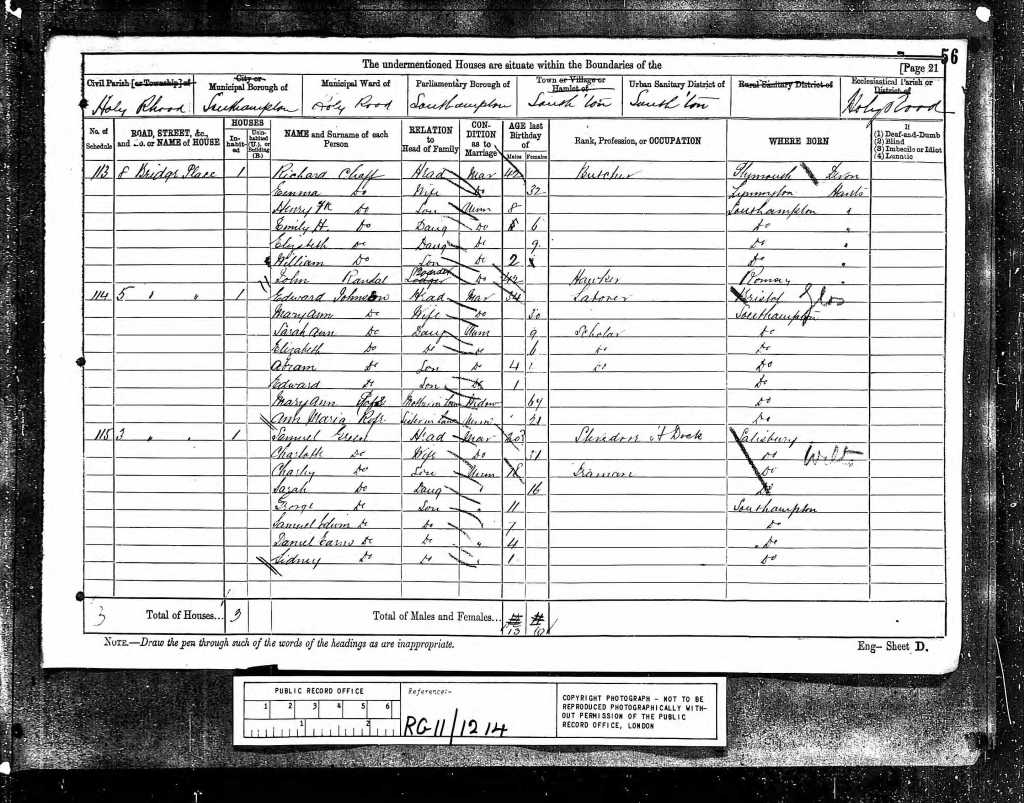 56
The undermentioned Houses are situate within the Boundaries of the
[Page 21
Civil Parish [or Township] of
City or Municipal Borough of
Municipal Ward of
Parliamentary Borough of
Town or Village or Hamlet of
Urban Sanitary District of
Rural Sanitary District of
Ecclesiastical Parish or District of
Holy Rhood Southampton Holy Rood Southampton South'ton South'ton Holy Rood
No. of Schedule
ROAD, STREET, &c., and No. or NAME of HOUSE
HOUSES
In-habit-ed
Unin-habited (U.), or Building (B.)
NAME and Surname of each Person
RELATION to Head of Family
CON-DITION as to Marriage
AGE last Birthday of
Males Females
Rank, Profession, or OCCUPATION
WHERE BORN
If
(1) Deaf-and-Dumb
(2) Blind
(3) Imbecile or Idiot
(4) Lunatic
113 8 Bridge Place 1 Richard Chaff Head Mar 42 Butcher Plymouth Devon
Emma Do Wife Do 32 Lymington Hants
Henry Do Son Unm 8 Southampton "
Emily H. Do Daug Do 6 Do "
Elizabeth Do Daug Do 9 Do "
William Do Son Do 2 Do "
John Randal Boarder Lodger Do 42 Hawker Romsey "
114 5 " " 1 Edward Johnson Head Mar 34 Laborer Bristol Glos
Mary Ann Do Wife Do 30 Southampton
Sarah Ann Do Daug Unm 9 Scholar Do
Elizabeth Do Do Do 6 Do Do
Abram Do Son Do 4 Do Do
Edward Do Son Do 1 Do
Mary Ann Mother in Law Widow 64 Do
Ann Maria Sister in Law Unm 21 Do
115 3 " " 1 Samuel Green Head Mar Dock Salisbury
Charlotte Do Wife Do 31 Do Wilts
Charley Do Son Unm 18 Do
Sarah Do Daug " 16 Do
George Do Son " 11 Southampton
Samuel Edwin Do Do " 7 Do
Daniel Do Do " 4 Do
Sidney Do Do " 1 Do
3 Total of Houses... 3 Total of Males and Females... 13 10
NOTE.—Draw the pen through such of the words of the headings as are inappropriate.
Eng– Sheet D.
PUBLIC RECORD OFFICE
1 2 3 4 5 6
1 2
Reference:-
RG11/1214
COPYRIGHT PHOTOGRAPH – NOT TO BE
REPRODUCED PHOTOGRAPHICALLY WITH-
OUT PERMISSION OF THE PUBLIC
RECORD OFFICE, LONDON